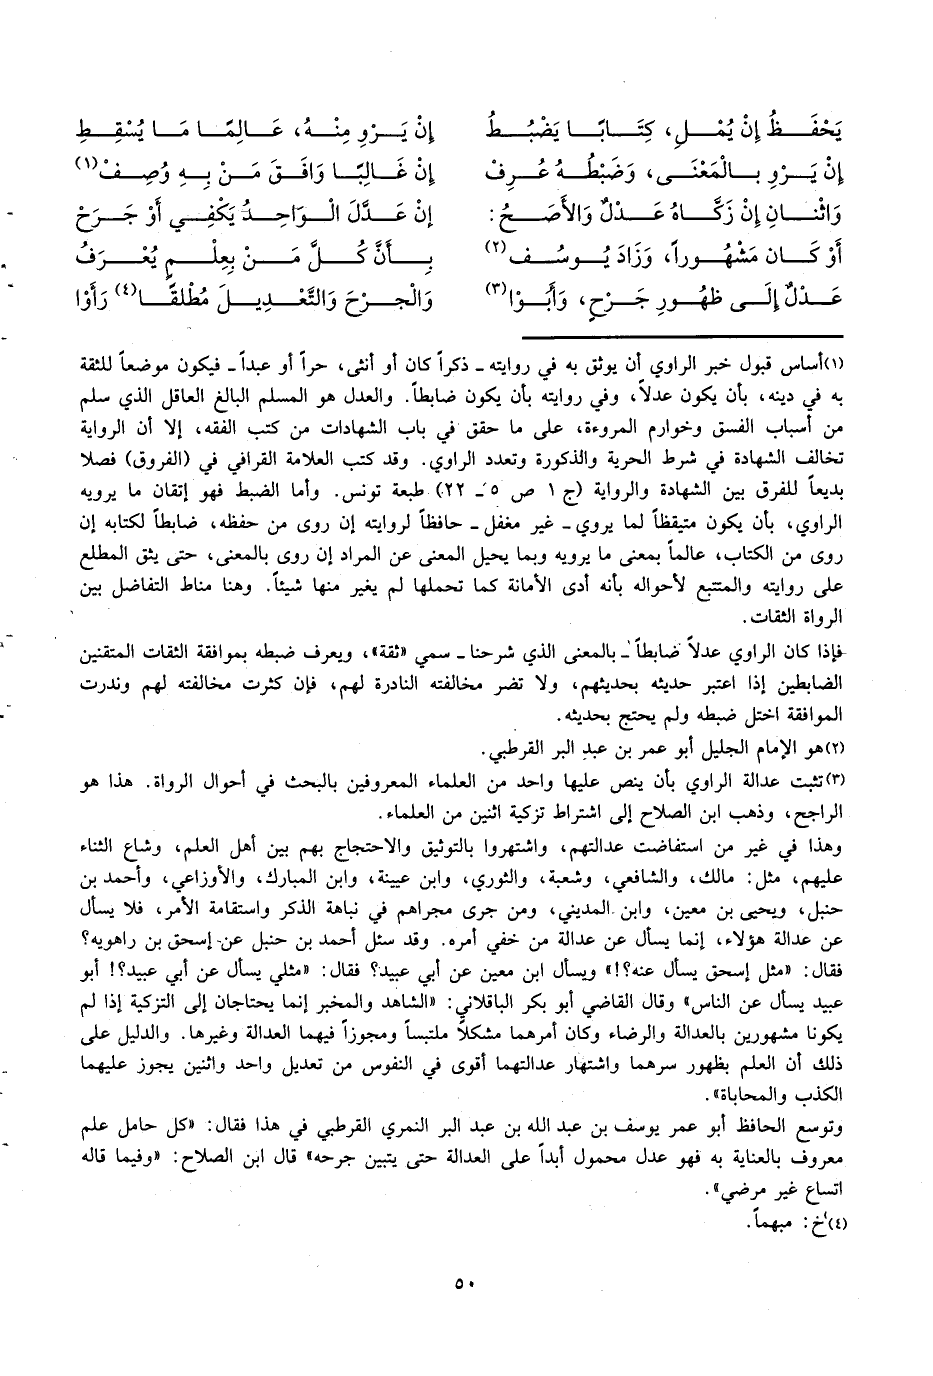 يَحْفَـــظُ إِنْ يُمْـــلِ، كِتَـــابًـــا يَضْبُـــطُ إِنْ يَـــرْوِ مِنْـــهُ، عَـــالِمًـــا مَـــا يُسْقِـــطِ
إِنْ يَـــرْوِ بِـــالْمَعْنَـــى، وَضَبْطُـــهُ عُـــرِفْ إِنْ غَـــالِبًـــا وَافَـــقَ مَـــنْ بِـــهِ وُصِـــفْ(١)
وَاثْنـــانِ إِنْ زَكَّـــاهُ عَـــدْلٌ وَالأَصَـــحُّ: إِنْ عَـــدَّلَ الْـــوَاحِـــدُ يَكْفِـــي أَوْ جَـــرَحْ
أَوْ كَـــانَ مَشْهُـــوراً، وَزَادَ يُـــوسُـــفُ(٢) بِـــأَنَّ كُـــلَّ مَـــنْ بِعِلْـــمٍ يُعْـــرَفُ
عَـــدْلٌ إِلَـــى ظُهُـــورِ جَـــرْحٍ، وَأَبَـــوْا(٣) وَالْجَـــرْحَ وَالتَّعْـــدِيـــلَ مُطْلَقًـــا(٤) رَأَوْا
(١) أساس قبول خبر الراوي أن يوثق به في روايته ـ ذكراً كان أو أنثى، حراً أو عبداً ـ فيكون موضعاً للثقة
به في دينه، بأن يكون عدلاً، وفي روايته بأن يكون ضابطاً. والعدل هو المسلم البالغ العاقل الذي سلم
من أسباب الفسق وخوارم المروءة، على ما حقق في باب الشهادات من كتب الفقه، إلا أن الرواية
تخالف الشهادة في شرط الحرية والذكورة وتعدد الراوي. وقد كتب العلامة القرافي في (الفروق) فصلا
بديعاً للفرق بين الشهادة والرواية (ج ١ ص ٥ ـ ٢٢) طبعة تونس. وأما الضبط فهو إتقان ما يرويه
الراوي، بأن يكون متيقظاً لما يروي ـ غير مغفل ـ حافظاً لروايته إن روى من حفظه، ضابطاً لكتابه إن
روى من الكتاب، عالماً بمعنى ما يرويه وبما يحيل المعنى عن المراد إن روى بالمعنى، حتى يثق المطلع
على روايته والمتتبع لأحواله بأنه أدى الأمانة كما تحملها لم يغير منها شيئاً. وهنا مناط التفاضل بين
الرواة الثقات.
فإذا كان الراوي عدلاً ضابطاً ـ بالمعنى الذي شرحنا ـ سمي «ثقة»، ويعرف ضبطه بموافقة الثقات المتقنين
الضابطين إذا اعتبر حديثه بحديثهم، ولا تضر مخالفته النادرة لهم، فإن كثرت مخالفته لهم وندرت
الموافقة اختل ضبطه ولم يحتج بحديثه.
(٢) هو الإمام الجليل أبو عمر بن عبد البر القرطبي.
(٣) تثبت عدالة الراوي بأن ينص عليها واحد من العلماء المعروفين بالبحث في أحوال الرواة. هذا هو
الراجح، وذهب ابن الصلاح إلى اشتراط تزكية اثنين من العلماء.
وهذا في غير من استفاضت عدالتهم، واشتهروا بالتوثيق والاحتجاج بهم بين أهل العلم، وشاع الثناء
عليهم، مثل: مالك، والشافعي، وشعبة، والثوري، وابن عيينة، وابن المبارك، والأوزاعي، وأحمد بن
حنبل، ويحيى بن معين، وابن المديني، ومن جرى مجراهم في نباهة الذكر واستقامة الأمر، فلا يسأل
عن عدالة هؤلاء، إنما يسأل عن عدالة من خفي أمره. وقد سئل أحمد بن حنبل عن إسحق بن راهويه؟
فقال: «مثل إسحق يسأل عنه؟!» ويسأل ابن معين عن أبي عبيد؟ فقال: «مثلي يسأل عن أبي عبيد؟! أبو
عبيد يسأل عن الناس» وقال القاضي أبو بكر الباقلاني: «الشاهد والمخبر إنما يحتاجان إلى التزكية إذا لم
يكونا مشهورين بالعدالة والرضاء وكان أمرهما مشكلاً ملتبساً ومجوزاً فيهما العدالة وغيرها. والدليل على
ذلك أن العلم بظهور سرهما واشتهار عدالتهما أقوى في النفوس من تعديل واحد واثنين يجوز عليهما
الكذب والمحاباة».
وتوسع الحافظ أبو عمر يوسف بن عبد الله بن عبد البر النمري القرطبي في هذا فقال: «كل حامل علم
معروف بالعناية به فهو عدل محمول أبداً على العدالة حتى يتبين جرحه» قال ابن الصلاح: «وفيما قاله
اتساع غير مرضي».
(٤) خ: مبهماً.
٥٠